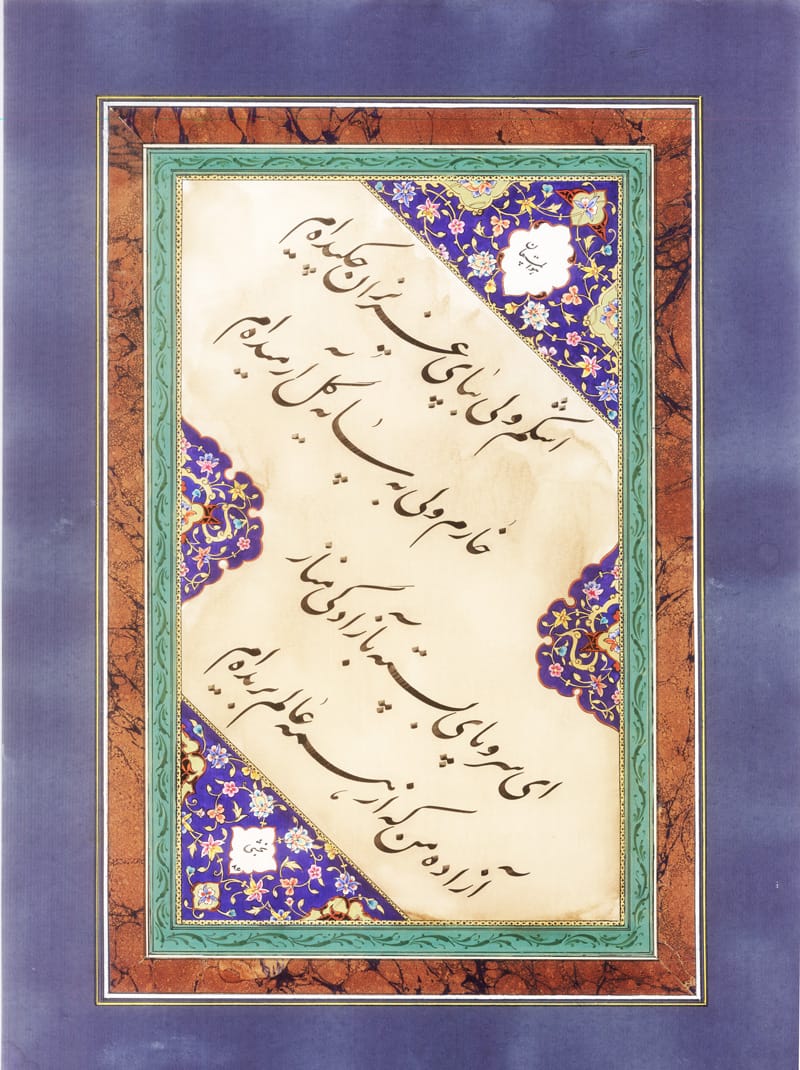 هوالمستعان
اشکم ولی بپای عزیزان چکیده‌ام
خارم ولی به سایه گل آرمیده‌ام
ای سرو پای بسته بازادگی مناز
آزاده من که از همه عالم بریده‌ام
مجتبی